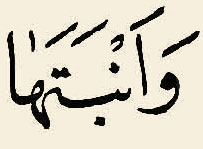 وَاَنْبَتَهٰا